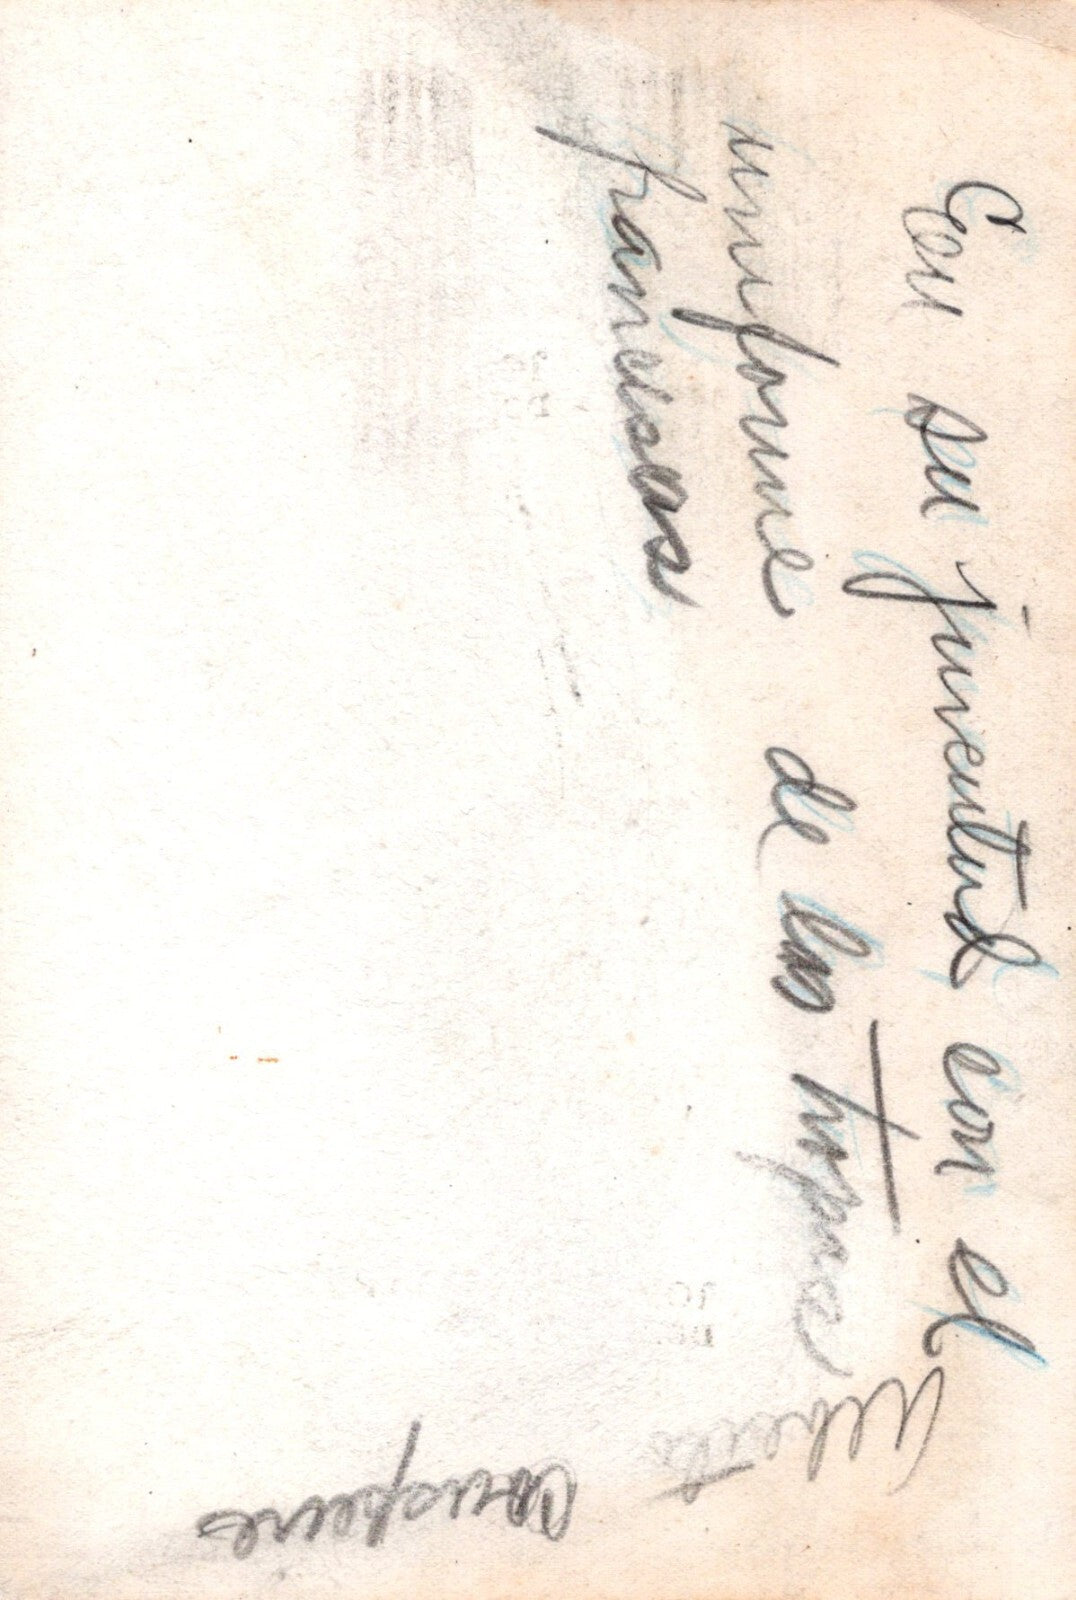 En su juventud con el
uniforme de las tropas
francesas
Alberto